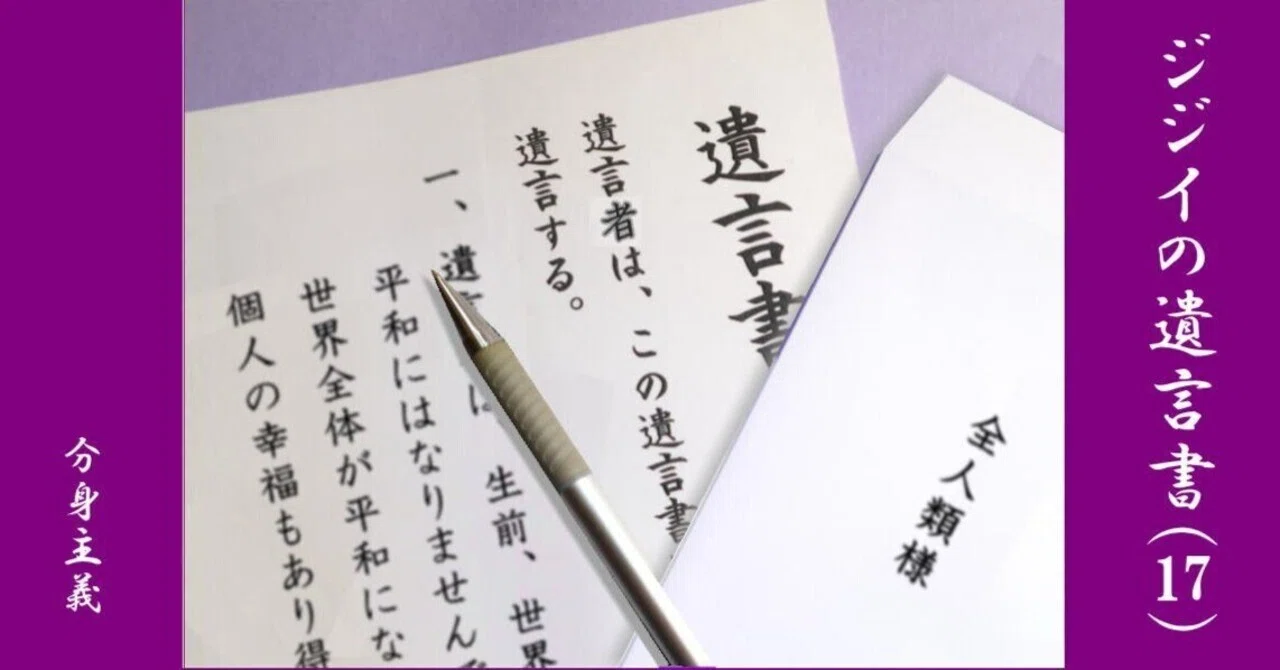 ジジイの遺言書(17)
全人類様
遺言書
遺言者は、この遺言書
遺言する。
一、遺 は 生前、世界
平和にはなりませんで
世界全体が平和にな
個人の幸福もあり得
分身主義